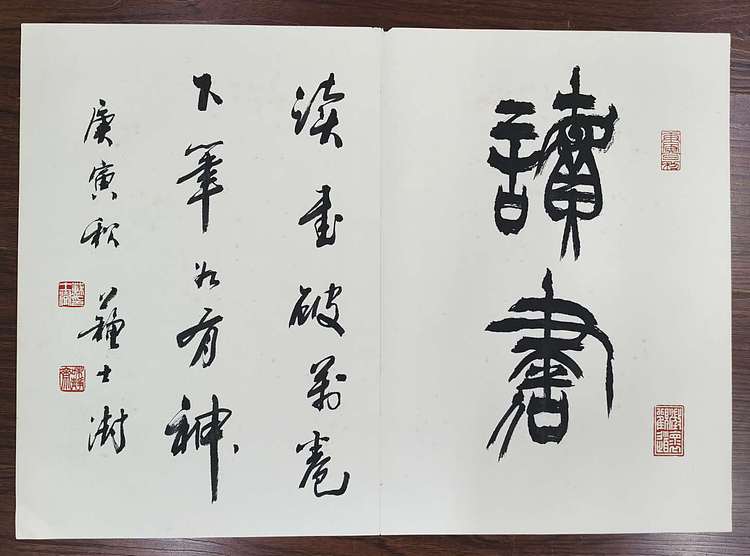 讀書
读书破萬卷
下筆如有神
庚寅秋
蘇士澍